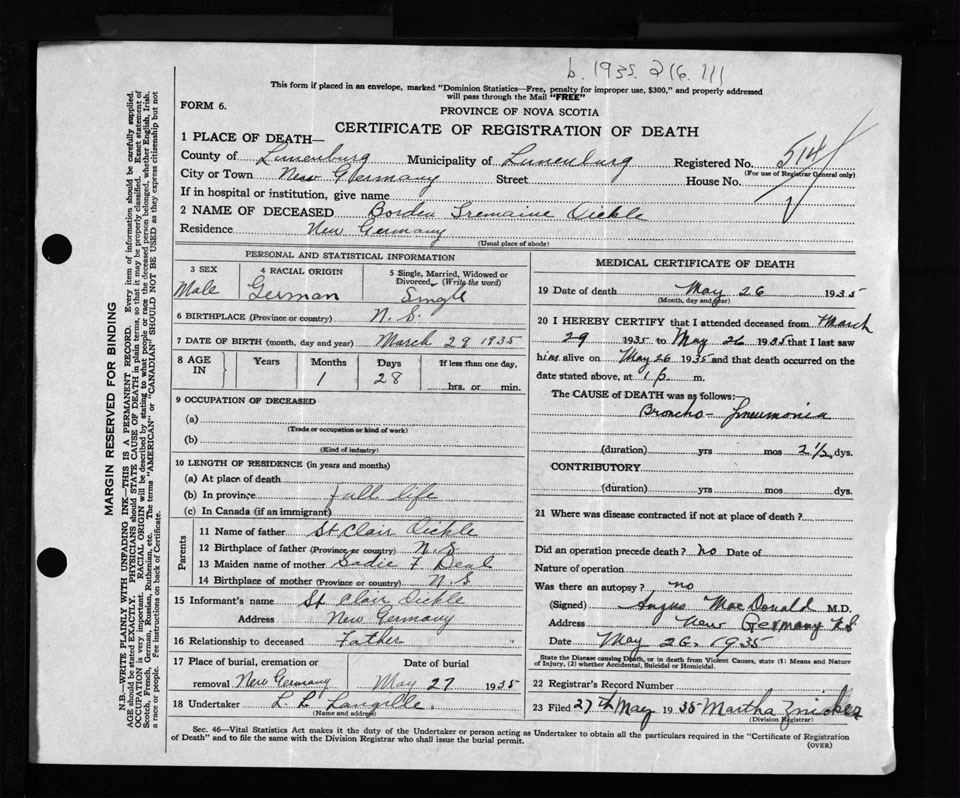 b. 1935. 216. 111
This form if placed in an envelope, marked "Dominion Statistics—Free, penalty for improper use, $300," and properly addressed
will pass through the Mail "FREE"
FORM 6.
PROVINCE OF NOVA SCOTIA
CERTIFICATE OF REGISTRATION OF DEATH
1 PLACE OF DEATH—
County of Lunenburg Municipality of Lunenburg Registered No. 514
(For use of Registrar General only)
City or Town New Germany Street House No.
If in hospital or institution, give name
2 NAME OF DECEASED Borden Tremaine Oickle
Residence New Germany
(Usual place of abode)
PERSONAL AND STATISTICAL INFORMATION
3 SEX Male
4 RACIAL ORIGIN German
5 Single, Married, Widowed or Divorced (Write the word) Single
6 BIRTHPLACE (Province or country) N. S.
7 DATE OF BIRTH (month, day and year) March 29 1935
8 AGE IN Years Months 1 Days 28 If less than one day, hrs. or min.
9 OCCUPATION OF DECEASED
(a)
(Trade or occupation or kind of work)
(b)
(Kind of industry)
10 LENGTH OF RESIDENCE (in years and months)
(a) At place of death
(b) In province full life
(c) In Canada (if an immigrant)
Parents
11 Name of father St Clair Oickle
12 Birthplace of father (Province or country) N. S
13 Maiden name of mother Sadie F Deal
14 Birthplace of mother (Province or country) N. S
15 Informant's name St. Clair Oickle
Address New Germany
16 Relationship to deceased Father
17 Place of burial, cremation or removal New Germany Date of burial May 27 1935
18 Undertaker L. L. Langille.
(Name and address)
MEDICAL CERTIFICATE OF DEATH
19 Date of death May 26 1935
(Month, day and year)
20 I HEREBY CERTIFY that I attended deceased from March
29 1935 to May 26 1935 that I last saw
him alive on May 26 1935 and that death occurred on
date stated above, at 1 p. m.
The CAUSE of DEATH was as follows:—
Broncho-Pneumonia
(duration) yrs mos 2 1/2 dys.
CONTRIBUTORY
(duration) yrs mos dys.
21 Where was disease contracted if not at place of death?
Did an operation precede death? no Date of
Nature of operation
Was there an autopsy? no
(Signed) Angus MacDonald M.D.
Address New Germany N.S
Date May 26, 1935
State the Disease causing Death, or in death from Violent Causes, state (1) Means and Nature
of Injury, (2) whether Accidental, Suicidal or Homicidal.
22 Registrar's Record Number
23 Filed 27th May 1935 Martha Zwicker
(Division Registrar)
Sec. 46—Vital Statistics Act makes it the duty of the Undertaker or person acting as Undertaker to obtain all the particulars required in the "Certificate of Registration
of Death" and to file the same with the Division Registrar who shall issue the burial permit.
(OVER)
MARGIN RESERVED FOR BINDING
N.B.—WRITE PLAINLY WITH UNFADING INK—THIS IS A PERMANENT RECORD. Every item of information should be carefully supplied.
AGE should be stated EXACTLY. PHYSICIANS should STATE CAUSE OF DEATH in plain terms, so that it may be properly classified. Exact statement of
OCCUPATION is very important. RACIAL ORIGIN will be described by stating to what people or race the deceased person belonged, whether English, Irish,
Scotch, French, German, Russian, Ruthenian, etc. The terms "AMERICAN" or "CANADIAN" SHOULD NOT BE USED as they express citizenship but not
a race or people. See instructions on back of Certificate.